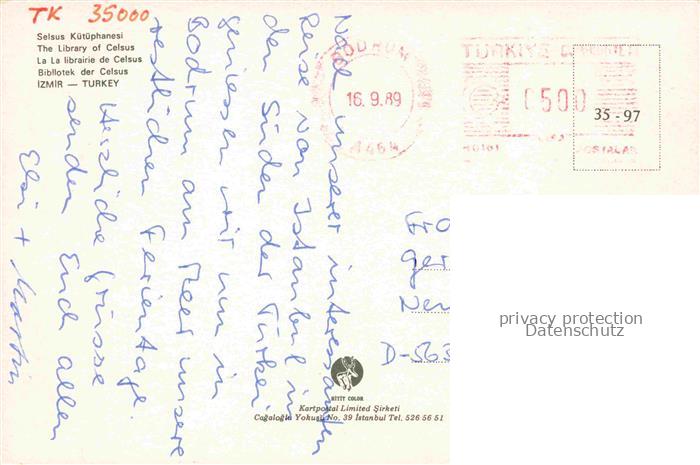 TK 35000
Selsus Kütüphanesi
The Library of Celsus
La La librairie de Celsus
Bibliotek der Celsus
İZMİR — TURKEY
Nach unserer interessanten
Reise von Istanbul in
den Süden der Türkei
geniessen wir nun in
Bodrum am Meer unsere
restlichen Ferientage.
Herzliche Grüsse
senden Euch allen
Elsi + Martin
BODRUM
16.9.89
TÜRKİYE
0500
35 - 97
D-563
privacy protection
Datenschutz
HITIT COLOR
Kartpostal Limited Şirketi
Cağaloğlu Yokuşu No. 39 İstanbul Tel. 526 56 51